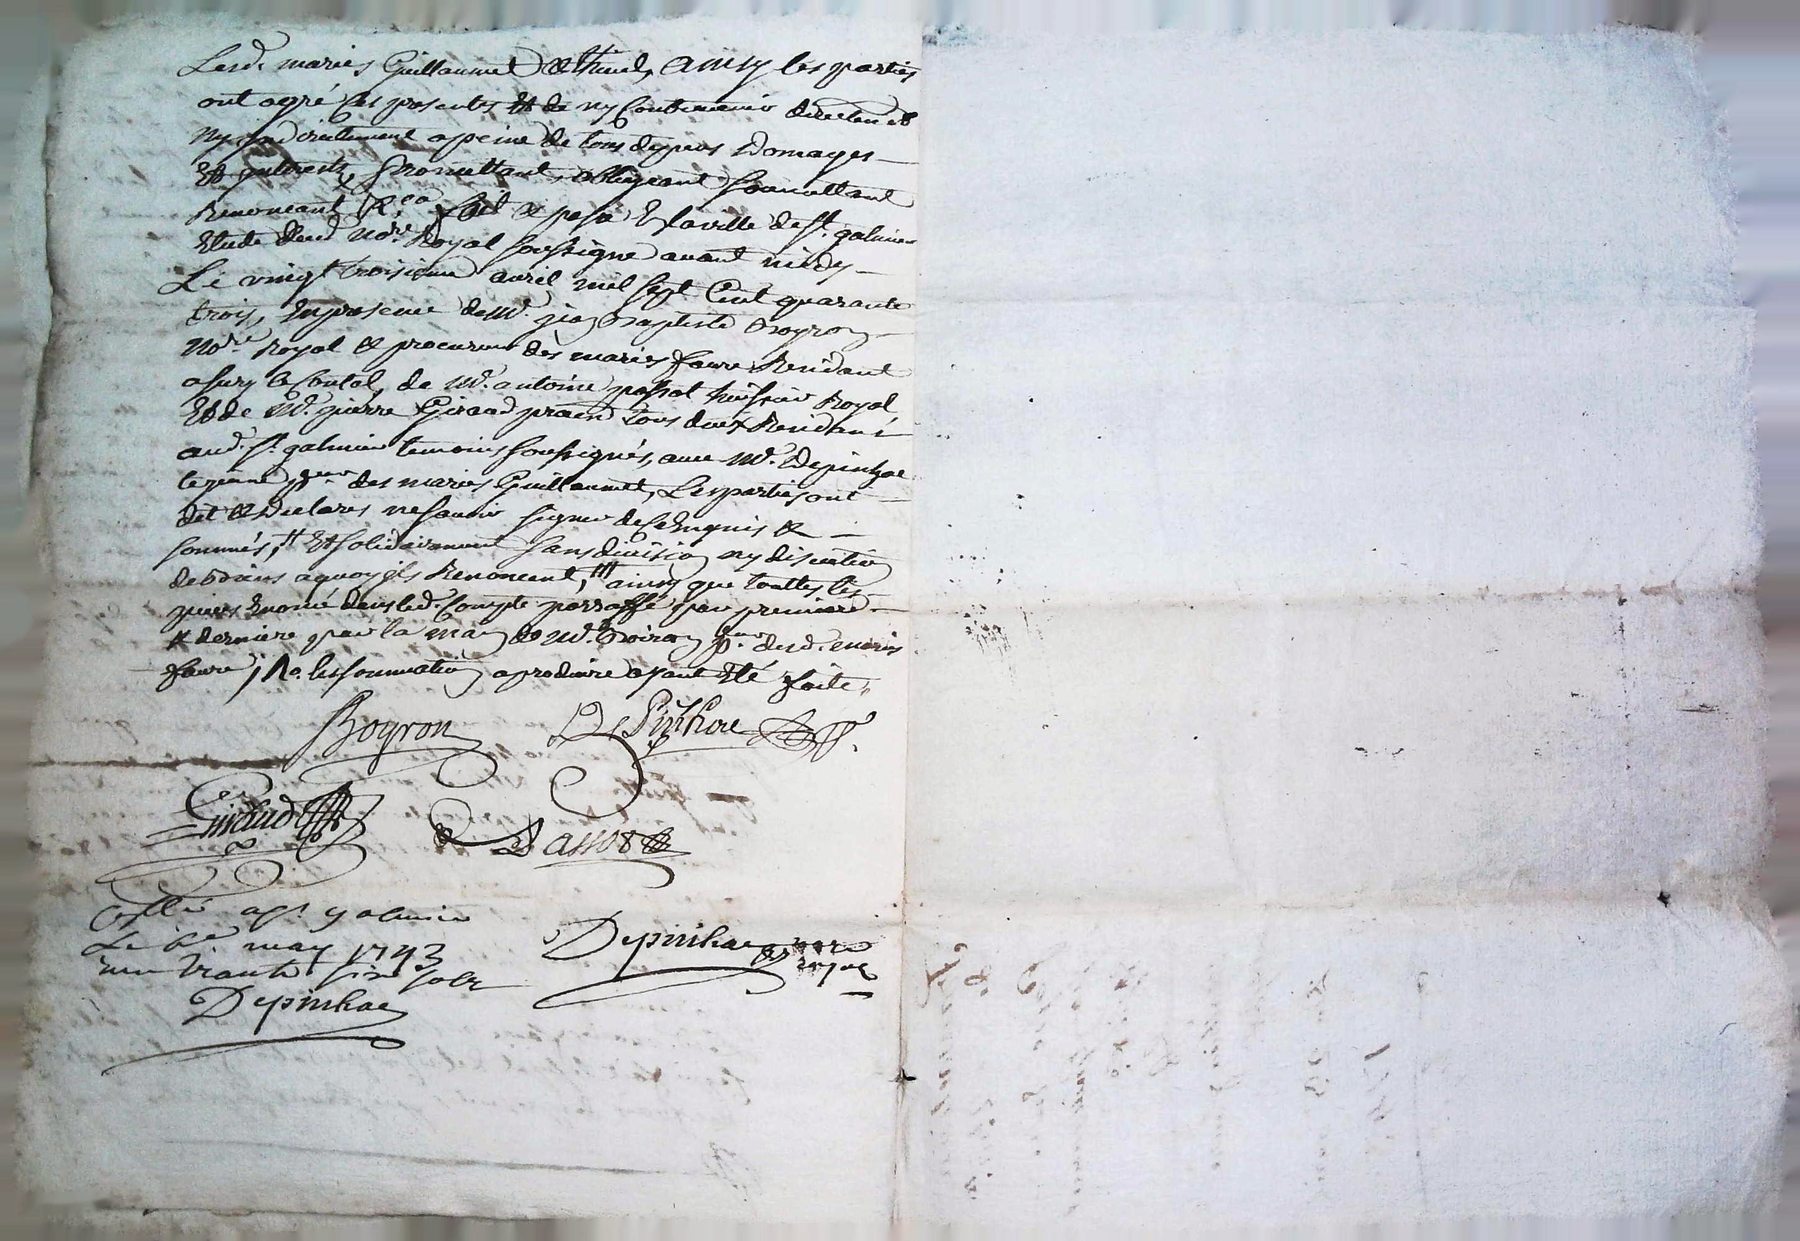 Lesd. mariés Guillaumet & thivel, ainsy les parties
ont agré ces presentes & de ny contrevenir directem.t
ny indirectement a peine de tous depens domages
Et interests, promettant, obligeant soumettant
Renoncant &.ca fait & passé En la ville de st. galmier
Etude dud no.re Royal soussigné avant midy
Le vingt troisieme avril mil sept Cent quarante
trois, En presence de M.e jean Baptiste Bogron
No.re Royal & procureur des mariés favre Residant
a sury le Contal, de M.e antoine passot huissier Royal
Et de M.e pierre Giraud praen tous deux Residant
aud. st. galmier temoins soussignés, avec M.e Depinhac
le jeune p.eur des mariés Guillaumet, Les parties ont
dit & declarés ne savoir signer de ce Enquis &
sommés, Et solidairement sans division ny discution
de biens a quoy ils Renoncent, ainsy que touttes les
pieces Enoncé dans led. Compte parraffé par premiere
& derniere par la main de M.e Boiron p.eur desd. mariés
favre, les sommation a produire ayant Eté faite,
Bogron DePinhac
Giraud Passot
Collé a st. galmier
Le 6e may 1743
Depinhac no.re royal
Depinhac